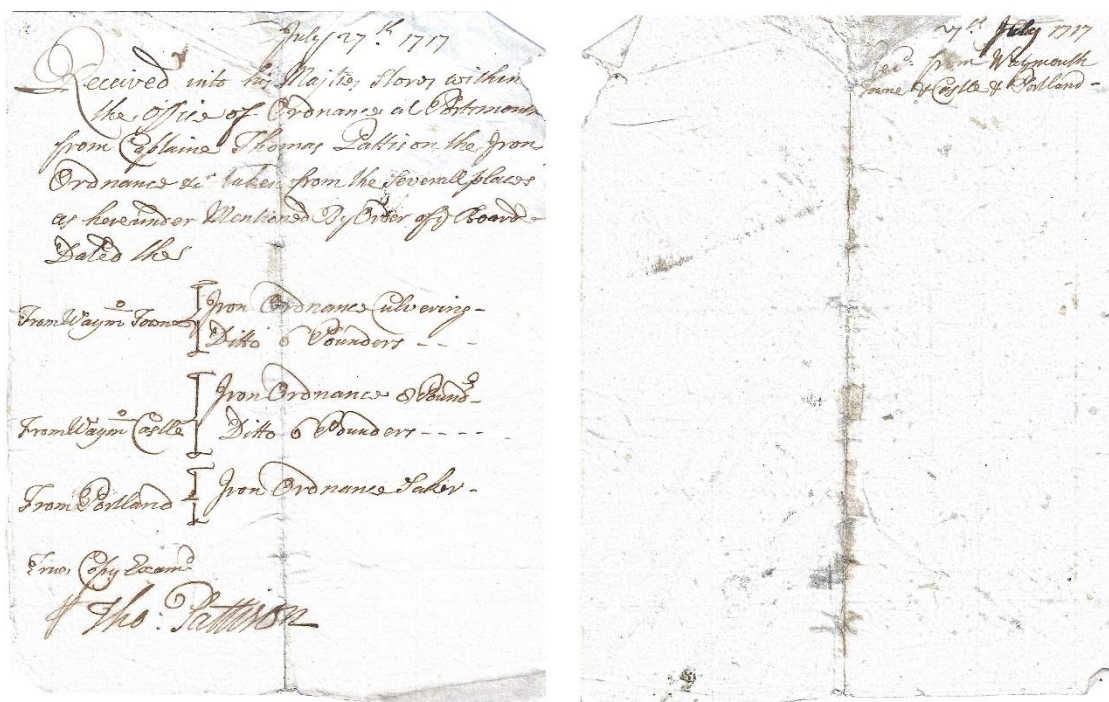 July 27th 1717
Received into his Majties Stores within
the Office of Ordnance at Portsmouth
from Captaine Thomas Pattison the Iron
Ordnance &c taken from the Severall places
as hereunder Mentioned By Order of ye Board
Dated the
From Waymo Towne
Iron Ordnance Culverings -
Ditto 6 Pounders - - - -
From Waymo Castle
Iron Ordnance 8 Pounds -
Ditto 6 Pounders - - - -
From Portland
Iron Ordnance Saker -
True Copy Examd
Tho: Pattison
27th July 1717
from Waymouth
Towne & Castle & Portland -